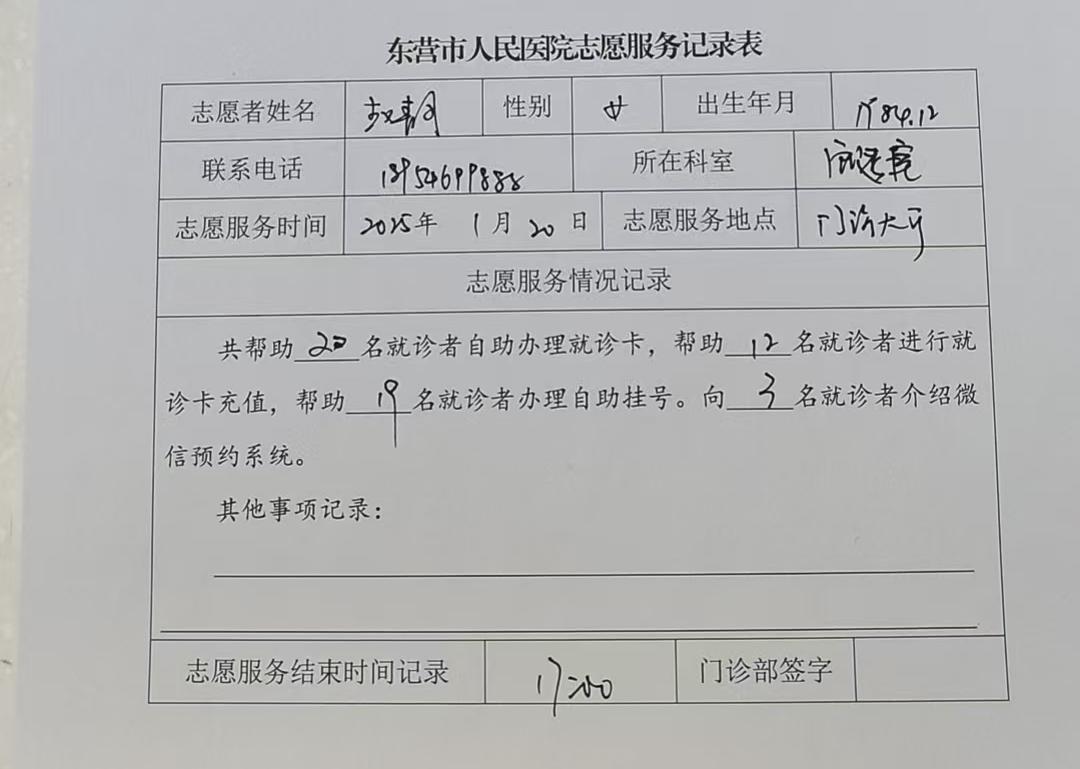 东营市人民医院志愿服务记录表
志愿者姓名 性别 女 出生年月 1984.12
联系电话 13954699888 所在科室
志愿服务时间 2025年 1月 20日 志愿服务地点 门诊大厅
志愿服务情况记录
共帮助20名就诊者自助办理就诊卡，帮助12名就诊者进行就
诊卡充值，帮助19名就诊者办理自助挂号。向3名就诊者介绍微
信预约系统。
其他事项记录：
志愿服务结束时间记录 17:00 门诊部签字